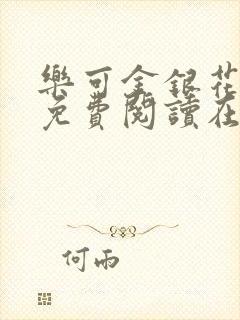 樂可金銀花
免費閱讀在
何雨